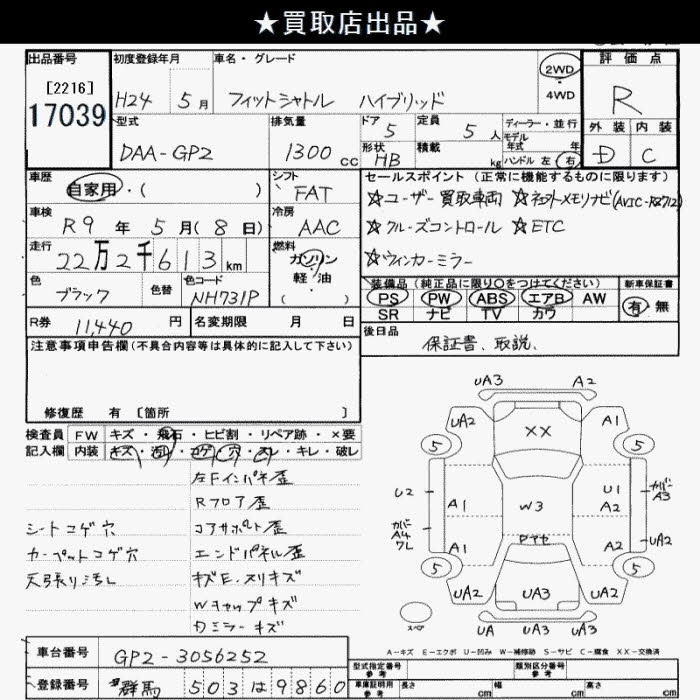 ★買取店出品★
出品番号 [2216] 17039
初度登録年月 H24 5月
車名・グレード フィットシャトル ハイブリッド
2WD・4WD
評価点 R
型式 DAA-GP2
排気量 1300cc
ドア 5
形状 HB
定員 5人
積載 kg
ディーラー・並行
モデル年式 年
ハンドル 左 右
外装 D
内装 C
車歴 自家用・( )
シフト FAT
セールスポイント (正常に機能するものに限ります)
☆ユーザー買取車両 ☆ネットメモリナビ(AVIC-RZ712)
☆クルーズコントロール ☆ETC
☆ウィンカーミラー
車検 R9年 5月(8日)
冷房 AAC
走行 22万2千613km
燃料 ガソリン・軽油 ( )
色 ブラック
色替
色コード NH731P
装備品 (純正品に限り○をつけてください)
PS PW ABS エアB AW
SR ナビ TV カワ
新車保証書 有・無
R券 11,440円
名変期限 月 日
後日品 保証書、取説、
注意事項申告欄(不具合内容等は具体的に記入して下さい)
修復歴 有 〔箇所 〕
検査員記入欄
FW キズ・飛石・ヒビ割・リペア跡・×要
内装 キズ・汚れ・コゲ・穴・スレ・キレ・破レ
左Fインパネ歪
Rフロア歪
シートコゲ穴 コアサポート歪
カーペットコゲ穴 エンドパネル歪
天張り汚レ キズE.スリキズ
Wキャップキズ
ミラーキズ
UA3 A2
UA2 XX A1
5 5
U2 A1 W3 U1 A2 カバーA3
カバーA4 ワレ A1 ヤセ A2 UA2
5 5
UA2 UA3 UA2
スペア UA UA3 UA3
A-キズ E-エクボ U-凹み W-補修跡 S-サビ C-腐食 XX-交換済
車台番号 GP2-3056252
型式指定番号 参考
類別区分番号 参考
登録番号 群馬 503 は 9860
車庫証明用 参考 長さ cm 幅 cm 高さ cm